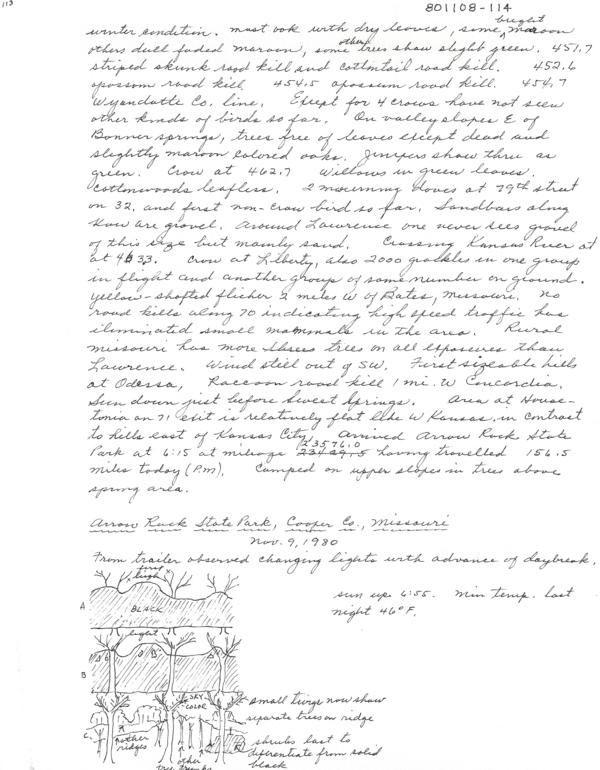 113
801108-114
winter condition. most oak with dry leaves, some bright maroon
others dull faded maroon, some other trees show slight green. 451.7
striped skunk road kill and cottontail road kill. 452.6
opossom road kill 454.5 opossum road kill. 454.7
Wyandotte Co. line. Except for 4 crows have not seen
other kinds of birds so far. On valley slopes E of
Bonner springs, trees free of leaves except dead and
slightly maroon colored oaks. Junipers show thru as
green. Crow at 462.7 Willows in green leaves.
Cottonwoods leafless. 2 mourning doves at 79th street
on 32, and first non-crow bird so far. Sandbars along
Kaw are gravel. Around Lawrence one never sees gravel
of this size but mainly sand. Crossing Kansas River at
at 463.3. Crow at Liberty, also 2000 grackles in one group
in flight and another group of same number on ground.
Yellow-shafted flicker 2 miles W of Bates, Missouri. No
road kills along 70 indicating high speed traffic has
iluminated small mammals in the area. Rural
Missouri has more trees on all exposures than
Lawrence. Wind still out of SW. First sizeable hills
at Odessa, Raccoon road kill 1 mi. W Concordia.
Sun down just before Sweet Springs. Area at Hous-
tonia on 71 exit is relatively flat like W Kansas, in contrast
to hills east of Kansas City. Arrived Arrow Rock State
Park at 6:15 at mileage 23576.0 having travelled 156.5
miles today (P.M). Camped on upper slopes in trees above
spring area.
Arrow Rock State Park, Cooper Co., Missouri
Nov. 9, 1980
From trailer observed changing lights with advance of daybreak.
first
light
sun up 6:55. Min temp. last
night 46°F.
A
BLACK
light
B
SKY
COLOR
small twigs now show
separate trees on ridge
C.
another
ridges
other
tree trunks
shrubs last to
diferentiate from solid
black